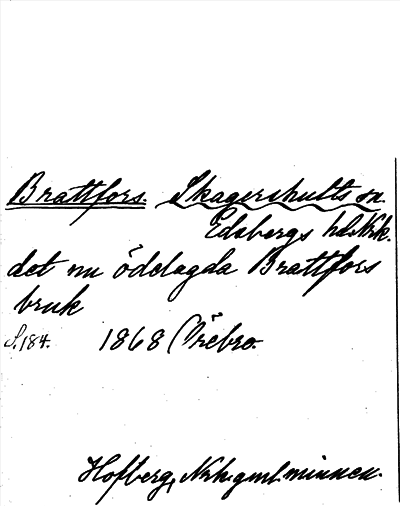 Brattfors. Skagershults sn.
Edsbergs hd. Nrk.
det nu ödelagda Brattfors
bruk
S. 184. 1868 Örebro.
Hofberg, Nrk. gml. minnen.